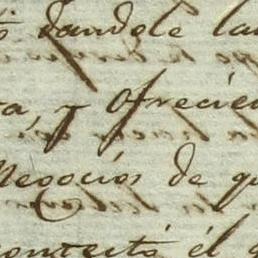 dandole la
a, y Ofrecie
Negocios de q
contestó él q